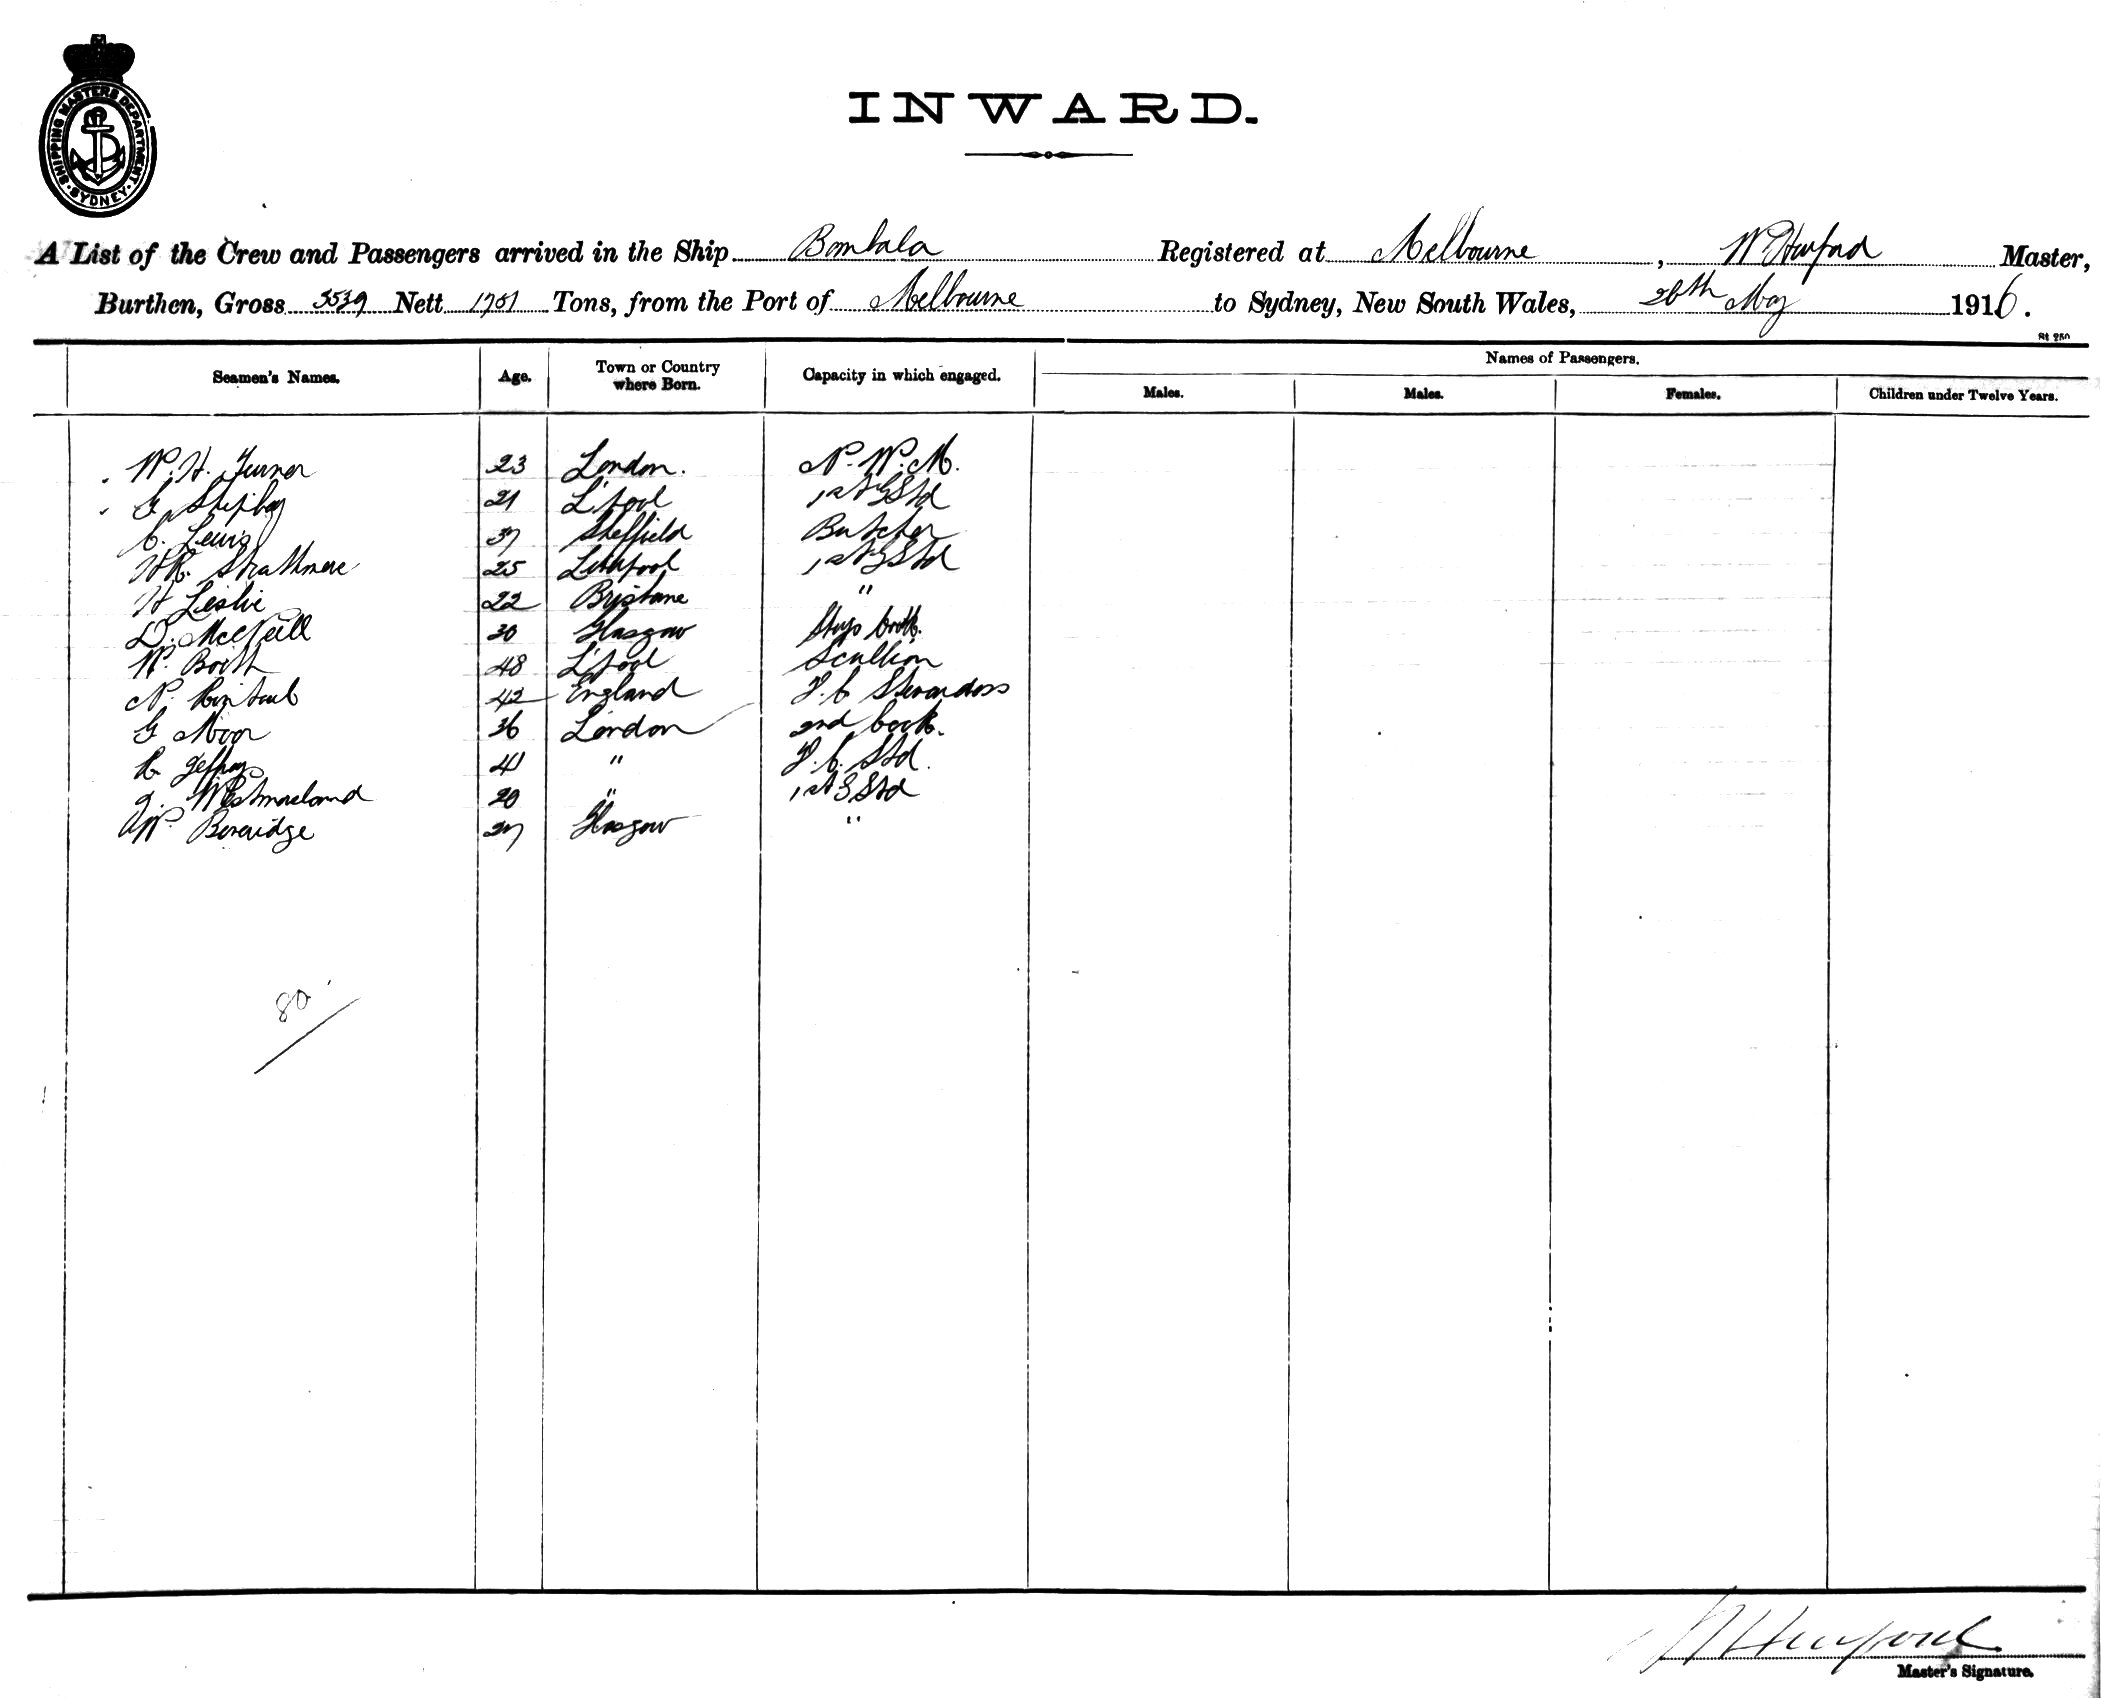 SHIPPING MASTERS DEPARTMENT. SYDNEY.
INWARD.
A List of the Crew and Passengers arrived in the Ship Bombala Registered at Melbourne, W Hurford Master,
Burthen, Gross 3539 Nett Tons, from the Port of Melbourne to Sydney, New South Wales, 26th May 1916.
Names of Passengers.
Seamen's Names. Age. Town or Country where Born. Capacity in which engaged. Males. Males. Females. Children under Twelve Years.
W. H. Turner 23 London. N. W. M.
G 21 L'pool 1st G Std
C. Lewis 37 Sheffield Butcher
HR. Strathmore 25 Liverpool 1st G Std
H Leslie 22 Brisbane "
D. McNeill 30 Glasgow Ships Cook.
W. Booth 48 L'pool Scullion
N. Rintoul 42 England F. C Stewardess
G Moor 36 London 2nd Cook.
R Jeffrays 41 " F. C. Std.
J. Westmoreland 20 " 1st G Std
AW. Beveridge 27 Glasgow "
80
W Hurford
Master's Signature.